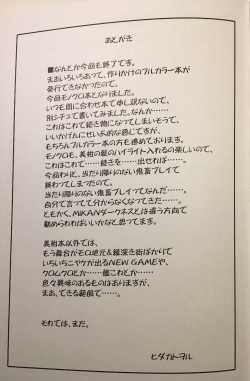 あとがき
■なんとか今回も終了です。
まあいろいろあって、作りかけのフルカラー本が
発行できなかったので、
今回モノクロ本となりました。
いつも間に合わせ本で申し訳ないので、
別シチュで書いてみました。なんか、
これはこれで続き物になってしまいそうで、
いいかげんにせいぷ的な感じですが、
もちろんフルカラー本の方も進めております。
モノクロも、美柑の髪のハイライト入れるの楽しいので、
これはこれで……続きを……出せれば……。
今回わりと、当たり障りのない鬼畜プレイで
終わってしまったので。
当たり障りのない鬼畜プレイってなんだ……。
自分で言ってて分からなくなってきた……。
ともかく、MIKANダークネスとは違う方向で
勧められればいいかなと思ってます。
美柑本以外では、
もう舞台がモロ地元&縄張り街ばかりで
いちいちニヤケが出るNEW GAMEや、
クロムクロとか……艦これとか……
色々興味のあるものはありますが、
まあ、できる範囲で……。
それでは、また。
ヒダカトヲル